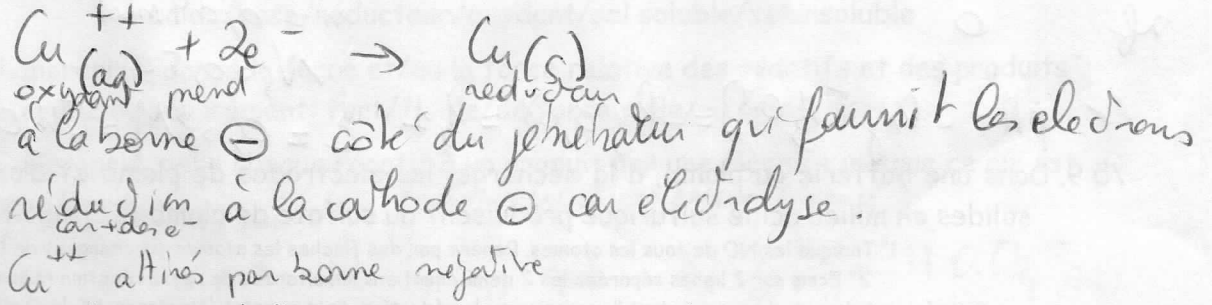 Cu⁺⁺(aq) + 2e⁻ → Cu(s)
oxydant prend réducteur
à la borne ⊖ côté du générateur qui fournit les électrons
réduction à la cathode ⊖ car électrolyse.
car + de e⁻
Cu⁺⁺ attirés par borne négative